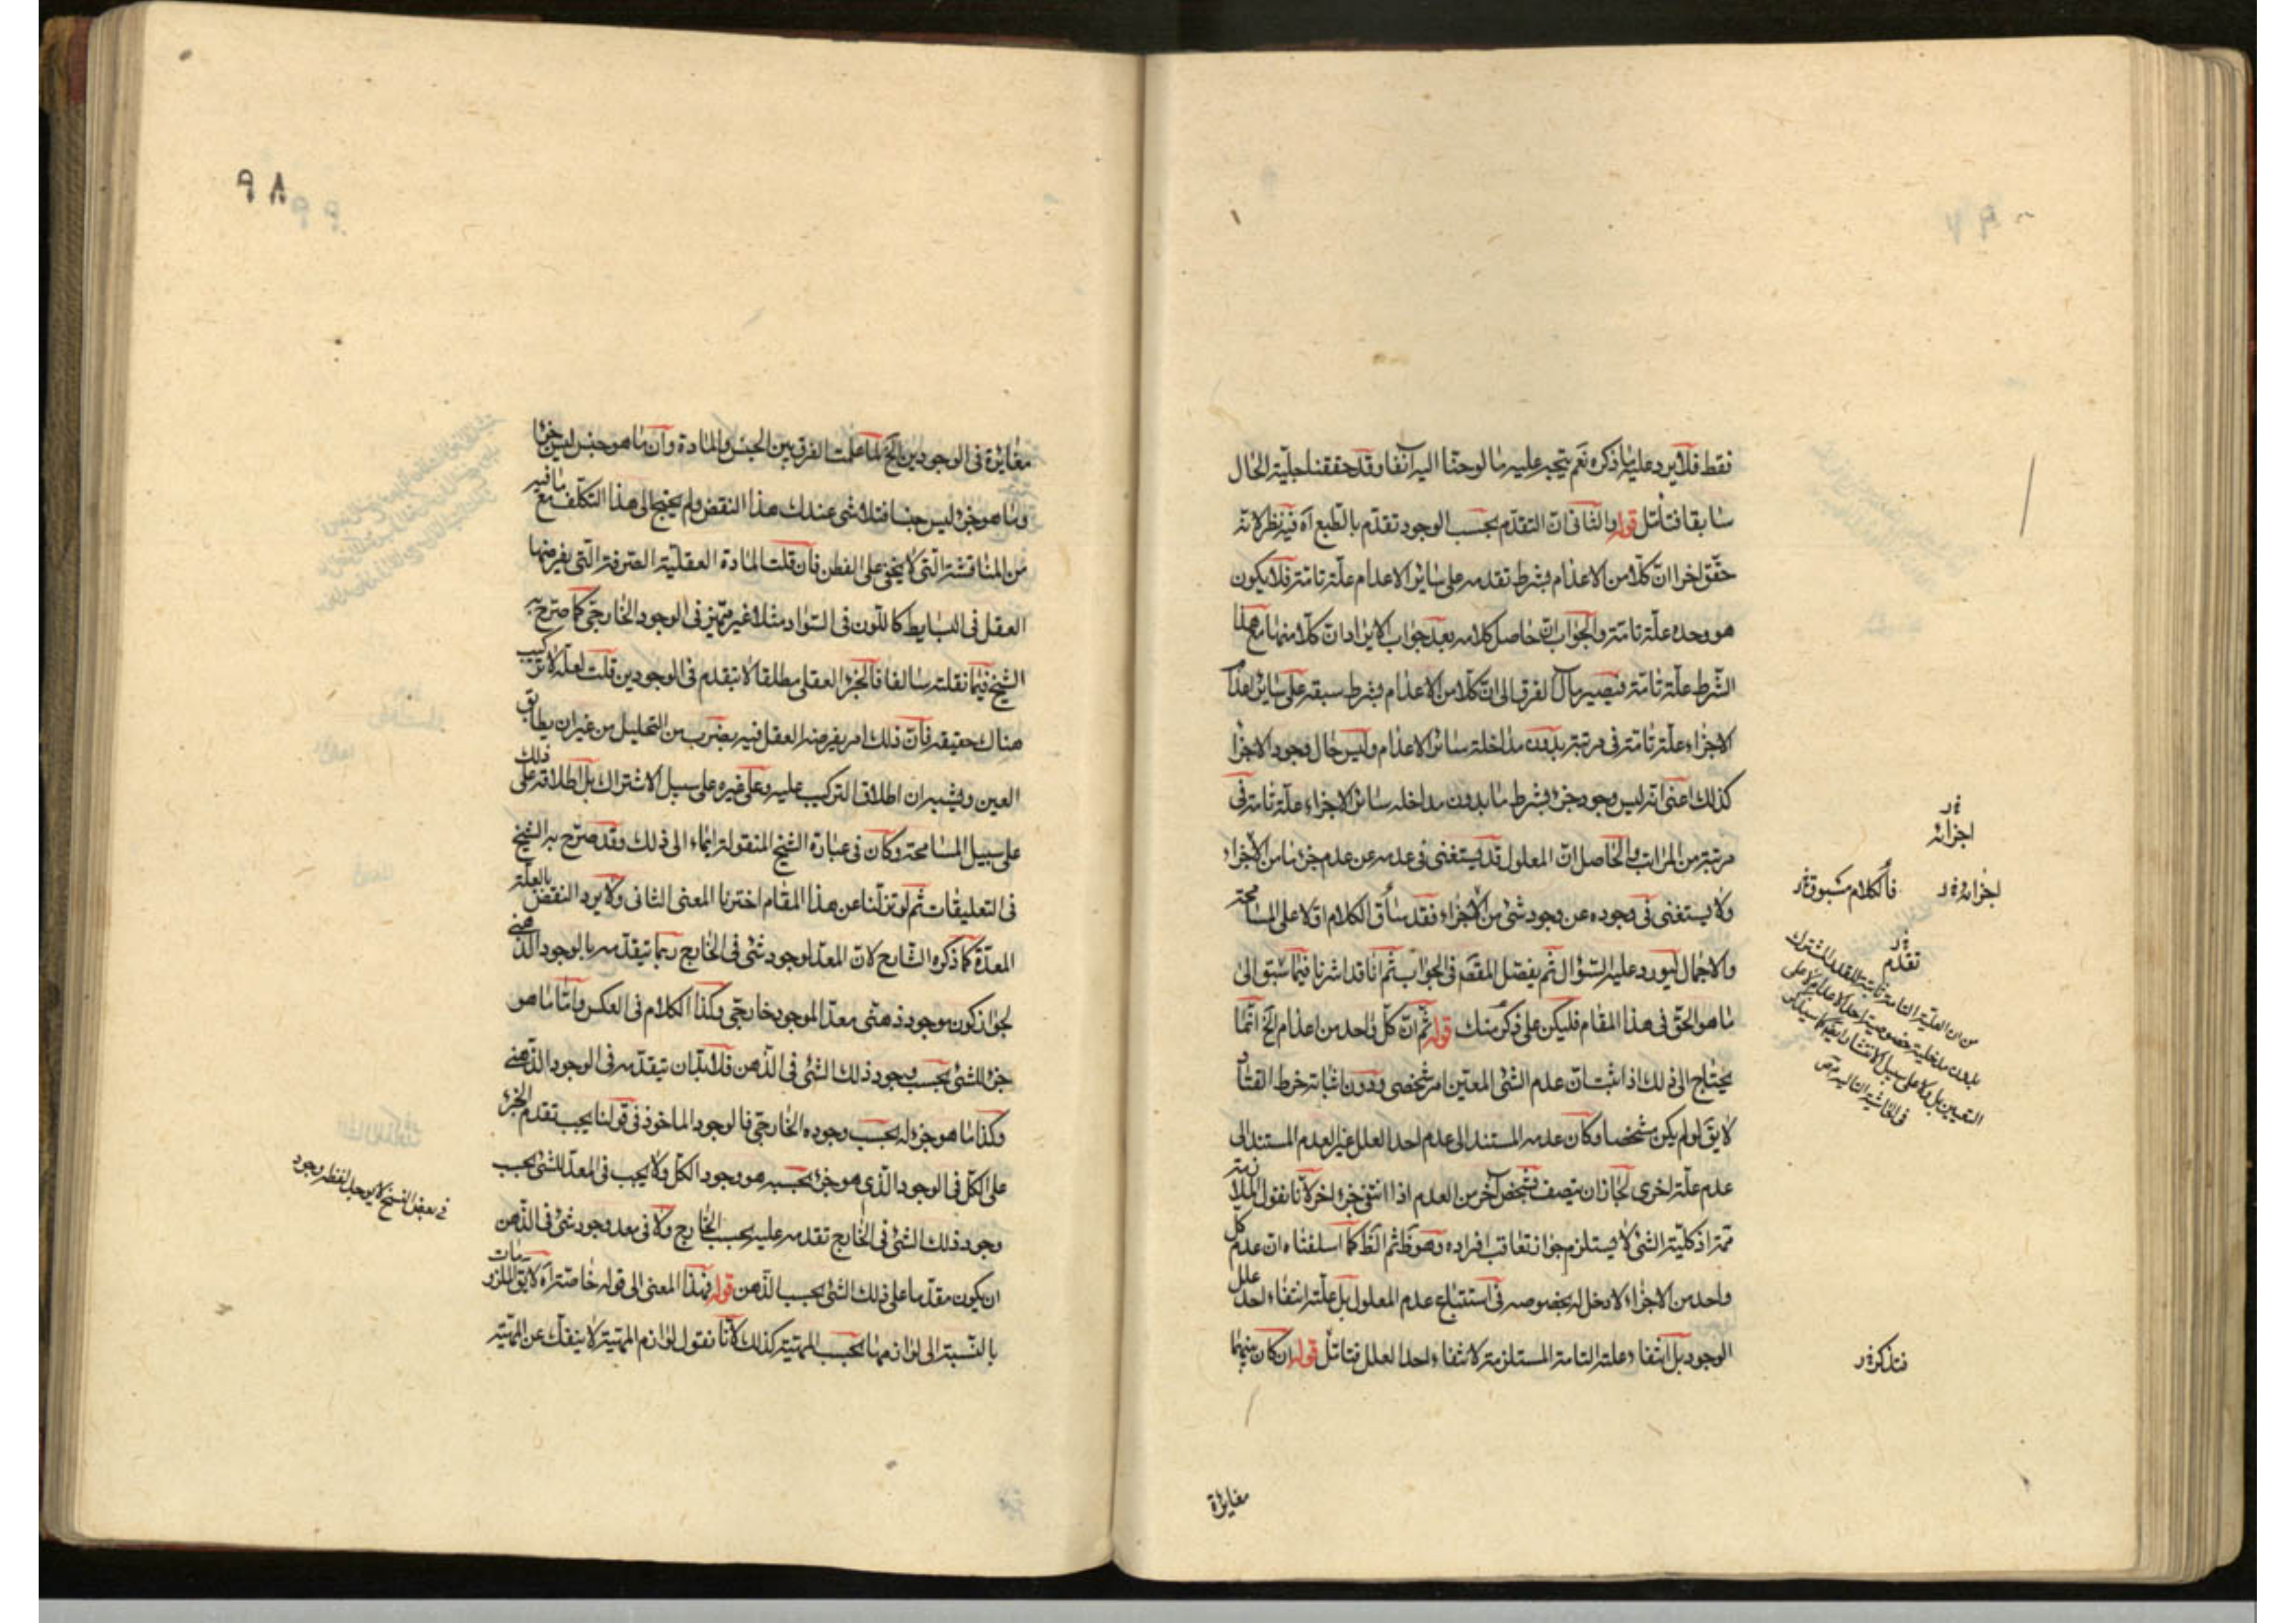 فقط فلا يرد عليه ما ذكره نعم يتجه عليه ما لوحنا اليه آنفا وقد حققنا جلية الحال
سابقا فتأمل قوله والثانى ان التقدم بحسب الوجود تقدم بالطبع آه فيه نظر لانه
حقق اخرا ان كلا من الاعدام بشرط تقدمه على سائر الاعدام علة تامة فلا يكون
هو وحده علة تامة والجواب ان حاصل كلامه بعد جواب الايراد ان كلا منها مع هذا
الشرط علة تامة فيصير مآل الفرق الى ان كلا من الاعدام بشرط سبقه على سائر اعدام
الاجزاء علة تامة فى مرتبته بدون مداخلة سائر الاعدام وليس حال وجود الاجزا
كذلك اعنى انه ليس وجود جزء بشرط ما بدون مداخلة سائر الاجزاء علة تامة فى
مرتبة من المراتب والحاصل ان المعلول قد يستغنى فى عدمه عن عدم جزء ما من الاجزاء
ولا يستغنى فى وجوده عن وجود شئ من الاجزاء فقد ساق الكلام اولا على المسامحة
والاجمال ليورد عليه السؤال ثم يفصل المقصد فى الجواب ثم انا قد اشرنا فيما سبق الى
ما هو الحق فى هذا المقام فليكن على ذكر منك قوله ثم ان كل واحد من اعدام الخ انما
يحتاج الى ذلك اذا اثبت ان عدم الشئ المعين امر شخصى ودون اثباته خرط القتاد
لا يق لو لم يكن مشخصا وكان عدمه المستند الى عدم احد العلل غير العدم المستند الى
عدم علة اخرى لجاز ان يتصف بشخص آخر من العدم اذا انتفى جزء اخر لانا نقول الملازمة
ممة اذ كلية الشئ لا يستلزم جواز تعاقب افراده وهو ظ ثم الظ كما اسلفناه ان عدم كل
واحد من الاجزاء لا دخل له بخصوصه فى استتباع عدم المعلول بل علته انتفاء احد علل
الوجود بل انتفاء علته التامة المستلزمة لانتفاء احد العلل فتأمل قوله ان كان بينهما
اجزائه
اجزائه
فالكلام مسوق
تقدم
فتذكر
مغايرة
٩٨
مغايرة فى الوجودين الخ لما علمت الفرق بين الجنس والمادة وان ما هو جنس ليس جزءا
وما هو جزء ليس جنسا فتلاشى عندك هذا النقض ولم يحتج الى هذا التكلف مع ما فيه
من المناقشة التى لا يخفى على الفطن فان قلت المادة العقلية الصرفة التى يفرضها
العقل فى البسايط كاللون فى السواد مثلا غير متميز فى الوجود الخارجى كما صرح به
الشيخ فيما نقلته سالفا فالجزء العقلى مطلقا لا يتقدم فى الوجودين قلت لعله لا تركيب
هناك حقيقة فان ذلك امر يفرضه العقل فيه بضرب من التحليل من غير ان يطابق
العين ويشبه ان اطلاق التركيب عليه وعلى غيره على سبيل الاشتراك بل اطلاقه على ذلك
على سبيل المسامحة وكان فى عبارة الشيخ المنقولة ايماء الى ذلك وقد صرح به الشيخ
فى التعليقات ثم لو تنزلنا عن هذا المقام اخترنا المعنى الثانى ولا يرد النقض بالعلة
المعدة كما ذكره الشارح لان المعد لوجود شئ فى الخارج ربما يتقدمه بالوجود الذهنى
لجواز كون موجود ذهنى معدا لموجود خارجى وكذا الكلام فى العكس واما ما هو
جزء للشئ بحسب وجود ذلك الشئ فى الذهن فلا بد ان يتقدمه فى الوجود الذهنى
وكذا ما هو جزء له بحسب وجوده الخارجى فالوجود الماخوذ فى قولنا يجب تقدم الجزء
على الكل فى الوجود الذى هو جزء بحسبه هو وجود الكل ولا يجب فى المعد للشئ بحسب
وجود ذلك الشئ فى الخارج تقدمه عليه بحسب الخارج ولا فى معد وجود شئ فى الذهن
ان يكون مقدما على ذلك الشئ بحسب الذهن قوله فهذا المعنى الى قوله خاصة آه لا يق الملزومات
بالنسبة الى لوازمها بحسب المهية كذلك لانا نقول لوازم المهية لا ينفك عن المهية
فى بعض النسخ لا يوجد لفظ وجود